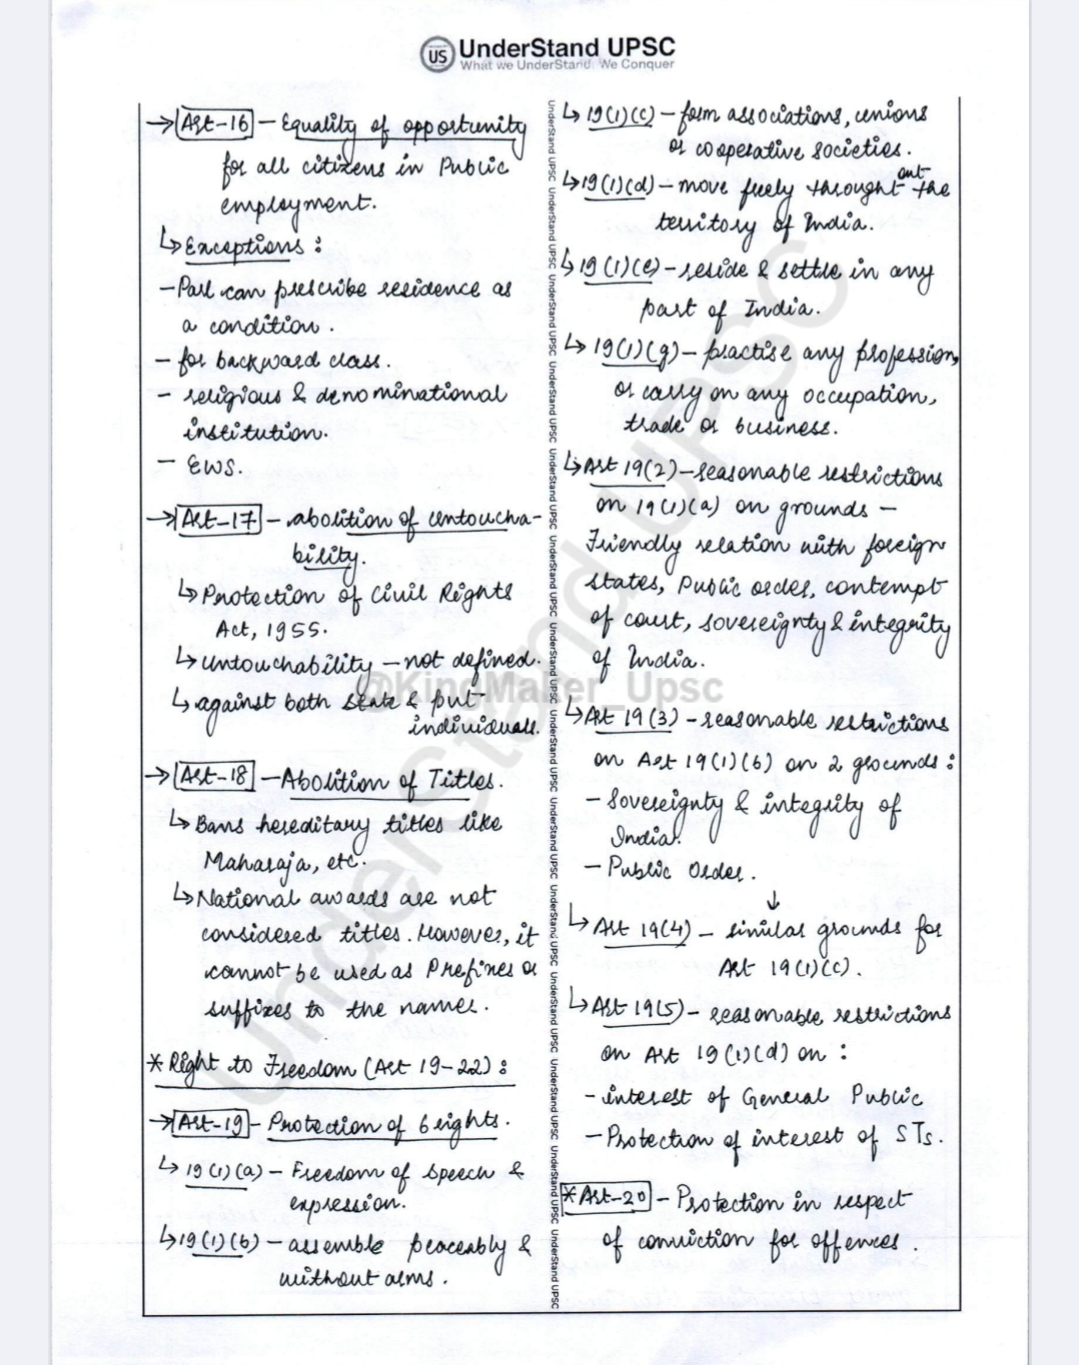 US UnderStand UPSC
What we UnderStand. We Conquer
→ Art-16 – Equality of opportunity
for all citizens in Public
employment.
↳ Exceptions :
– Parl can prescribe residence as
a condition.
– for backward class.
– religious & denominational
institution.
– EWS.
→ Art-17 – abolition of untoucha-
bility.
↳ Protection of Civil Rights
Act, 1955.
↳ untouchability – not defined.
↳ against both state & pvt
individuals.
→ Art-18 – Abolition of Titles.
↳ Bans hereditary titles like
Maharaja, etc.
↳ National awards are not
considered titles. However, it
cannot be used as Prefixes or
suffixes to the names.
* Right to Freedom (Art 19-22) :
→ Art-19 – Protection of 6 rights.
↳ 19(1)(a) – Freedom of speech &
expression.
↳ 19(1)(b) – assemble peaceably &
without arms.
↳ 19(1)(c) – form associations, unions
or cooperative societies.
↳ 19(1)(d) – move freely throughtout the
territory of India.
↳ 19(1)(e) – reside & settle in any
part of India.
↳ 19(1)(g) – practise any profession,
or carry on any occupation,
trade or business.
↳ Art 19(2) – reasonable restrictions
on 19(1)(a) on grounds –
Friendly relation with foreign
states, Public order, contempt
of court, sovereignty & integrity
of India.
↳ Art 19(3) – reasonable restrictions
on Art 19(1)(b) on 2 grounds :
– Sovereignty & integrity of
India.
– Public Order.
↓
↳ Art 19(4) – similar grounds for
Art 19(1)(c).
↳ Art 19(5) – reasonable restrictions
on Art 19(1)(d) on :
– interest of General Public
– Protection of interest of STs.
* Art-20 – Protection in respect
of conviction for offences.
UnderStand UPSC UnderStand UPSC UnderStand UPSC UnderStand UPSC UnderStand UPSC UnderStand UPSC UnderStand UPSC UnderStand UPSC UnderStand UPSC UnderStand UPSC UnderStand UPSC UnderStand UPSC UnderStand UPSC UnderStand UPSC
UnderStand UPSC
@KingMaker_Upsc